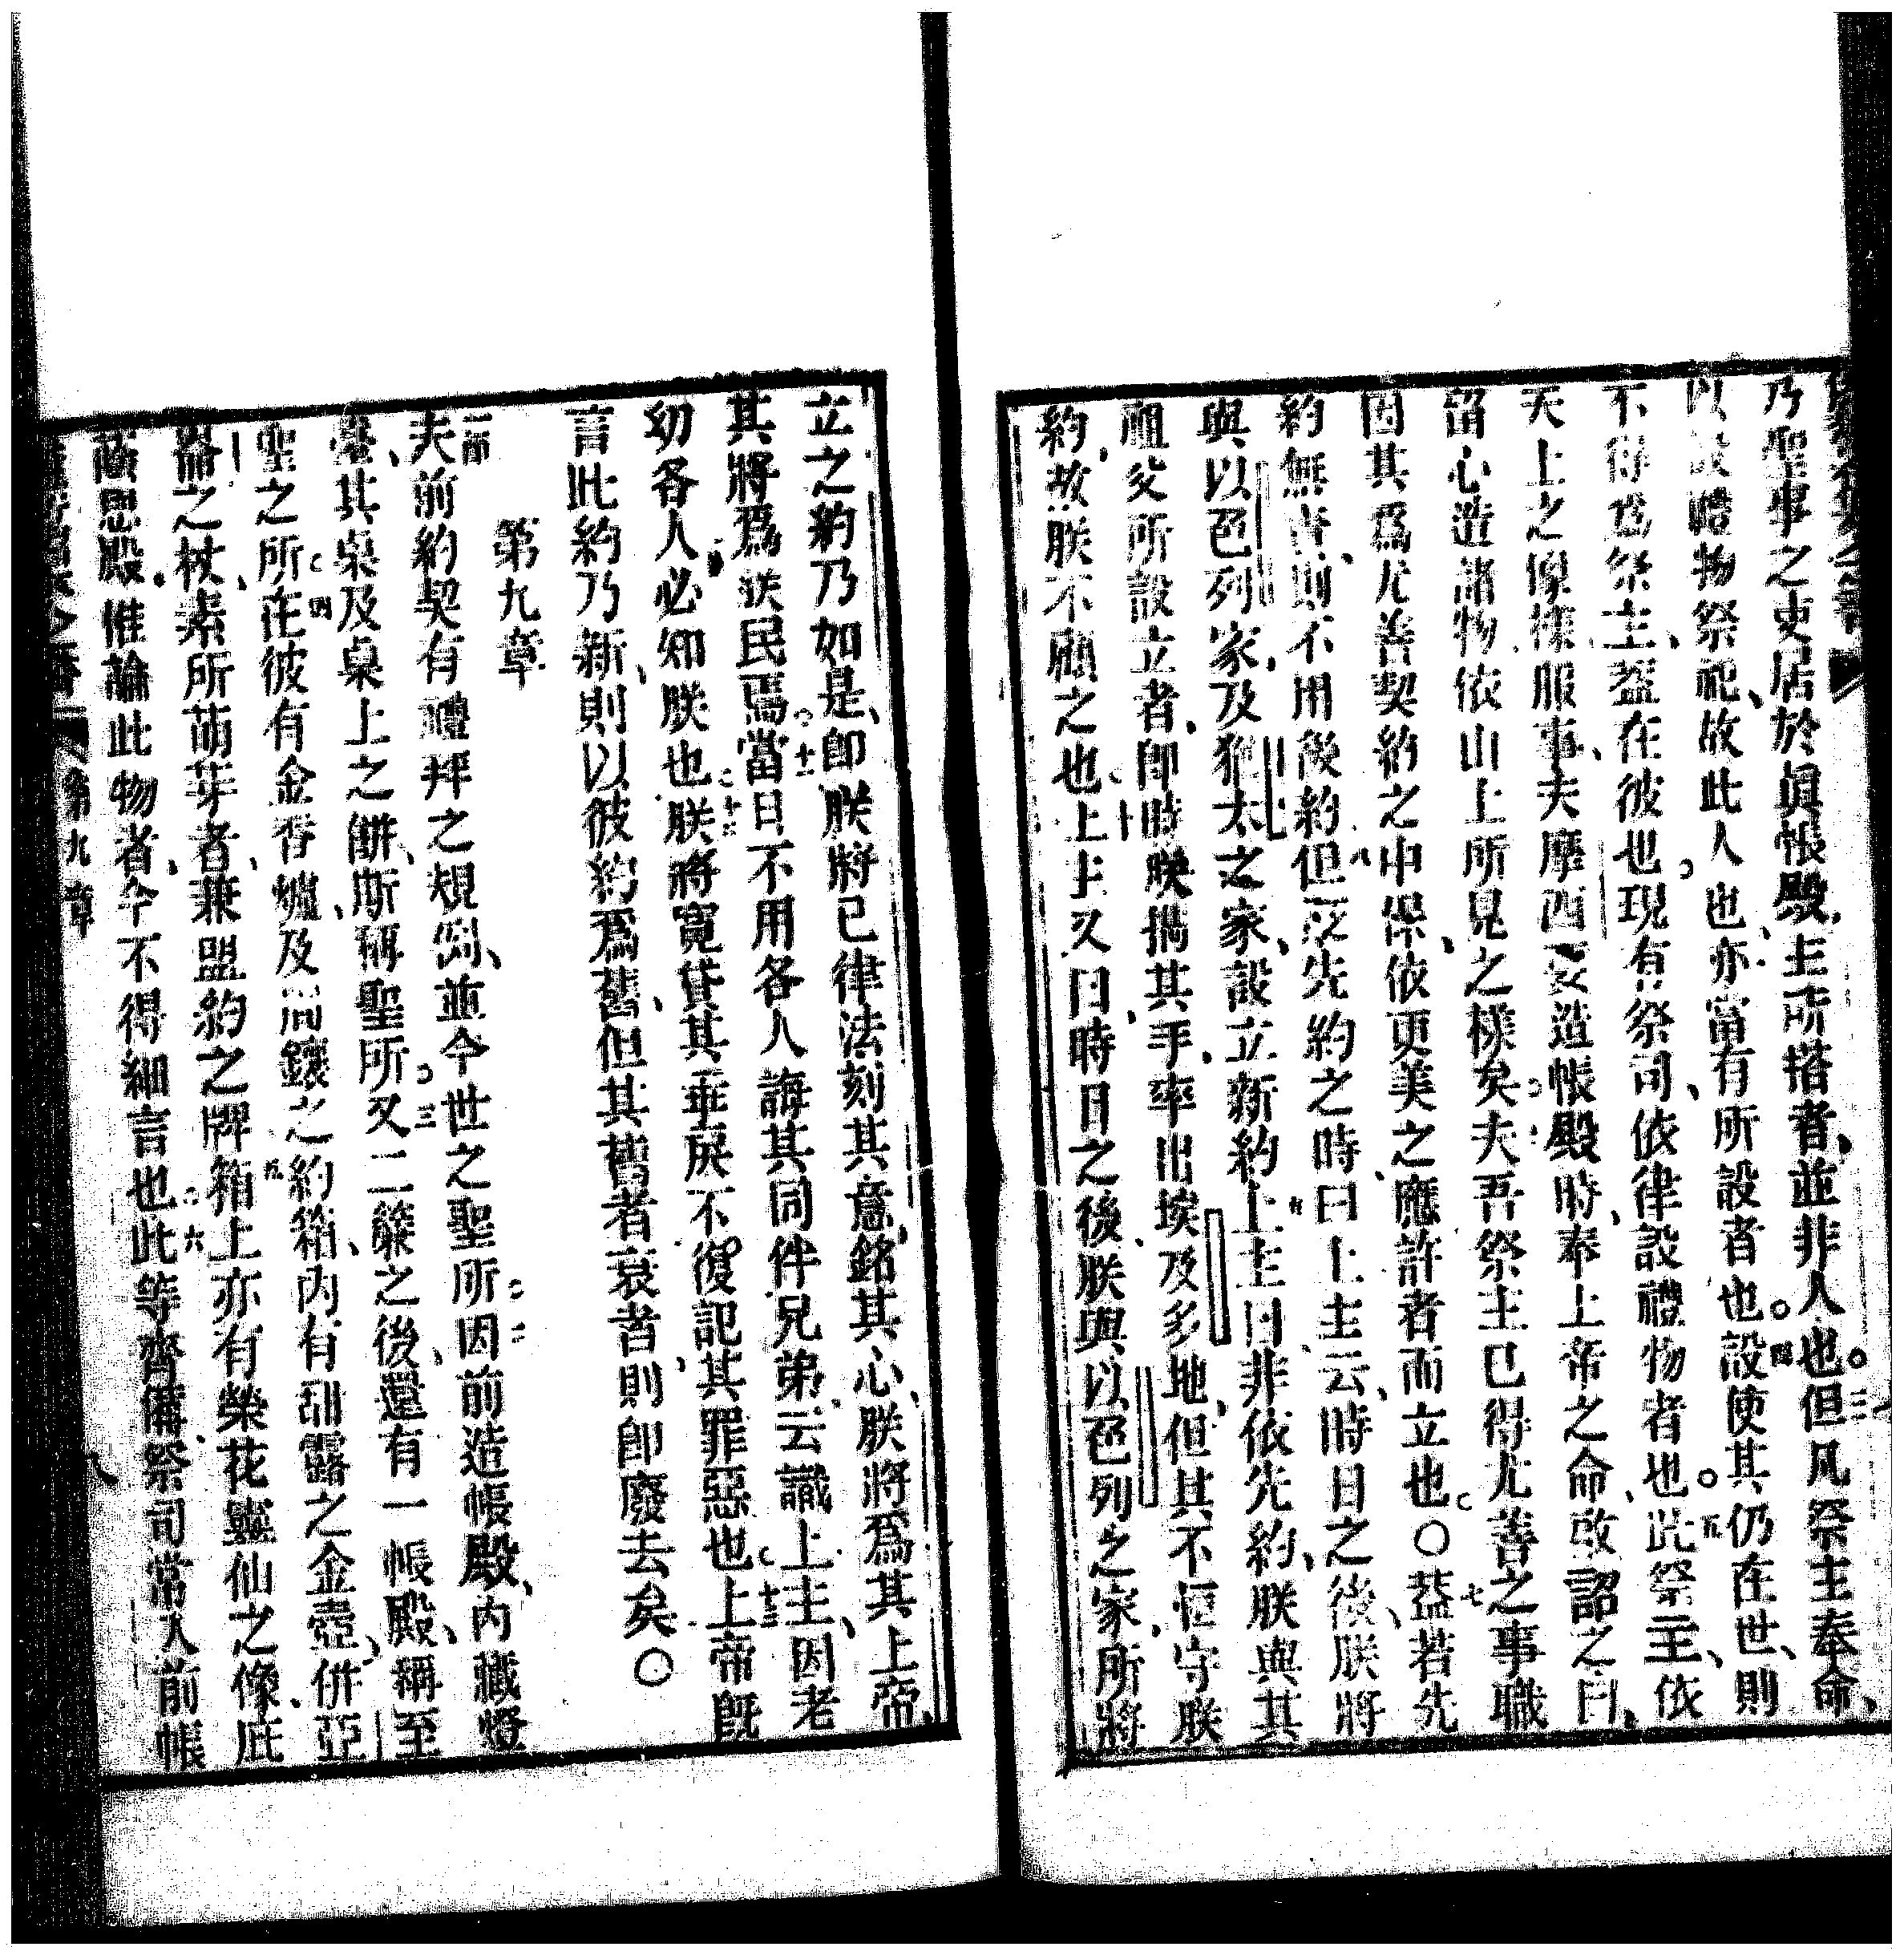 乃聖事之吏居於眞帳殿主所搭者並非人也三但凡祭主奉命
以設禮物祭祀故此人也亦當有所設者也四設使其仍在世則
不得爲祭主蓋在彼也現有祭司依律設禮物者也五此祭主依
天上之像樣服事夫摩西要造帳殿時奉上帝之命敢詔之曰
留心造諸物依山上所見之樣矣夫吾祭主已得尤善之事職
因其爲尤善契約之中保依更美之應許者而立也〇七蓋若先
約無害則不用後約但八泛先約之時曰上主云時日之後朕將
與以色列家及猶太之家設立新約九上主曰非依先約朕與其
祖父所設立者卽時朕攜其手率出埃及多地但其不恒守朕
約故朕不顧之也十上主又曰時日之後朕與以色列之家所將
立之約乃如是卽朕將已律法刻其意銘其心朕將爲其上帝
其將爲朕民焉十一當日不用各人誨其同伴兄弟云識上主因老
幼各人必知朕也十二朕將寬貸其乖戾不復記其罪惡也十三上帝旣
言此約乃新則以彼約爲舊但其舊者衰者則卽廢去矣〇
第九章
一節夫前約契有禮拜之規例並今世之聖所二因前造帳殿內藏燈
臺其桌及桌上之餅斯稱聖所三又二簾之後還有一帳殿稱至
聖之所四在彼有金香爐及周鑲之約箱內有甜露之金壺併亞
崙之杖素所萌芽者兼盟約之牌五箱上亦有榮花靈仙之像庇
蔭恩殿惟論此物者今不得細言也六此等齊備祭司常入前帳
第九章
八